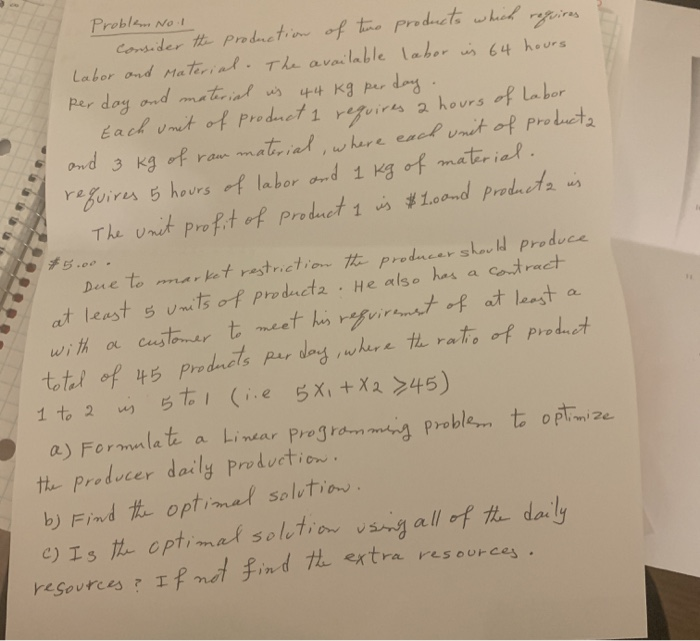 Problem No. 1
Consider the production of two products which requires
Labor and Material. The available labor is 64 hours
per day and material is 44 Kg per day.
Each unit of Product 1 requires 2 hours of Labor
and 3 kg of raw material, where each unit of product 2
requires 5 hours of labor and 1 kg of material.
The unit profit of product 1 is $1.00 and product 2 is
$5.00.
Due to market restriction the producer should produce
at least 5 units of product 2. He also has a contract
with a customer to meet his requirement of at least a
total of 45 products per day, where the ratio of product
1 to 2 is 5 to 1 (i.e 5X₁ + X₂ ≥ 45)
a) Formulate a Linear programming problem to optimize
the producer daily production.
b) Find the optimal solution.
c) Is the optimal solution using all of the daily
resources? If not find the extra resources.